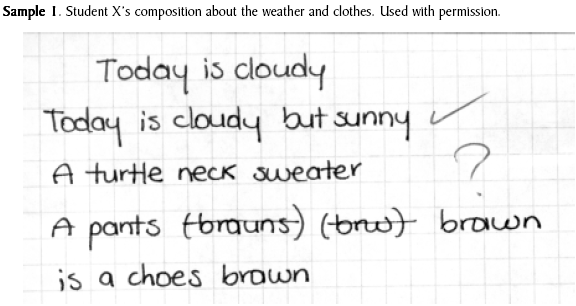 Sample 1. Student X's composition about the weather and clothes. Used with permission.
Today is cloudy
Today is cloudy but sunny ✓
A turtle neck sweater ?
A pants (brauns) (brw) brawn
is a choes brawn